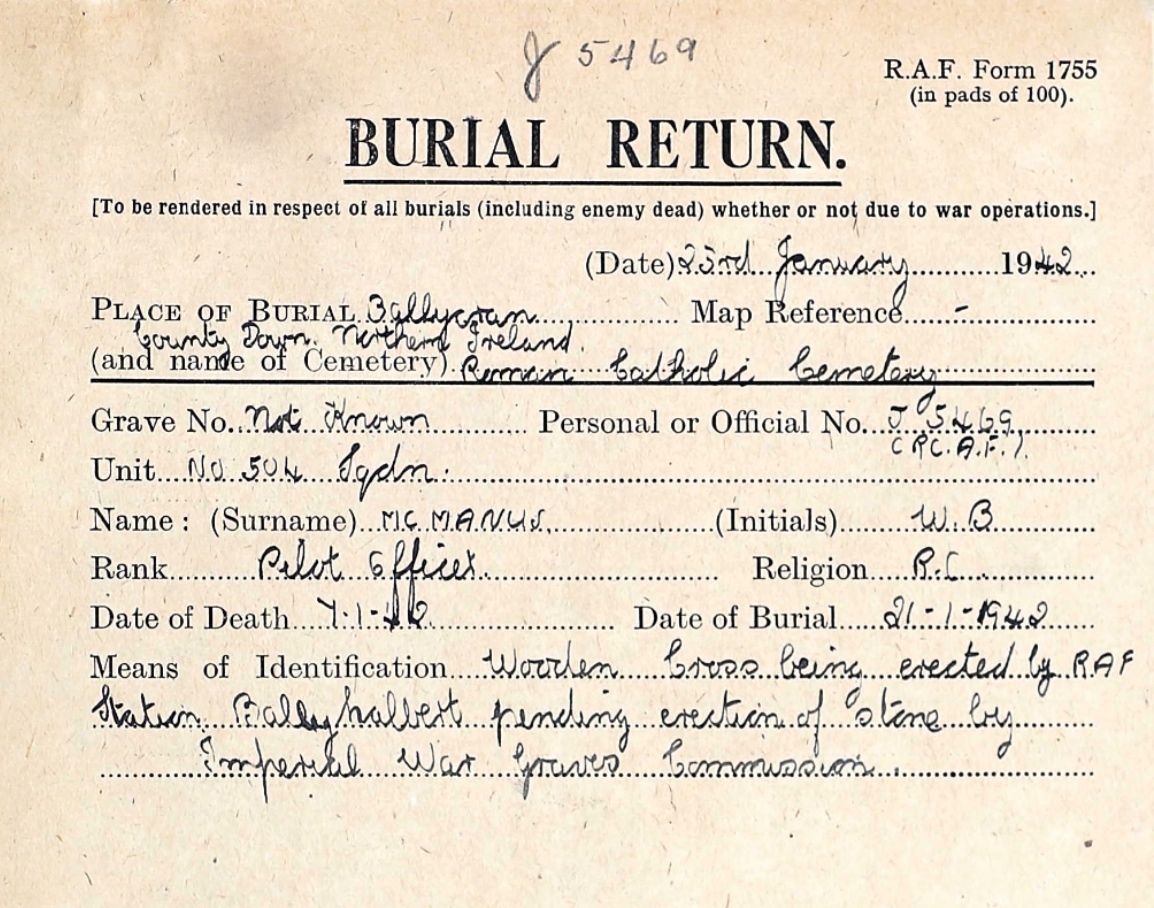 J 5469
R.A.F. Form 1755
(in pads of 100).
BURIAL RETURN.
[To be rendered in respect of all burials (including enemy dead) whether or not due to war operations.]
(Date) 23rd January 1942
PLACE OF BURIAL Ballycran Map Reference -
County Down. Northern Ireland.
(and name of Cemetery) Roman Catholic Cemetery
Grave No. Not Known Personal or Official No. J 5469
(R.C.A.F.).
Unit No 504 Sqdn.
Name: (Surname) MCMANUS (Initials) W.B
Rank Pilot Officer. Religion R.C.
Date of Death 7-1-42 Date of Burial 21-1-1942
Means of Identification Wooden Cross being erected by RAF
Station Ballyhalbert pending erection of stone by
Imperial War Graves Commission.